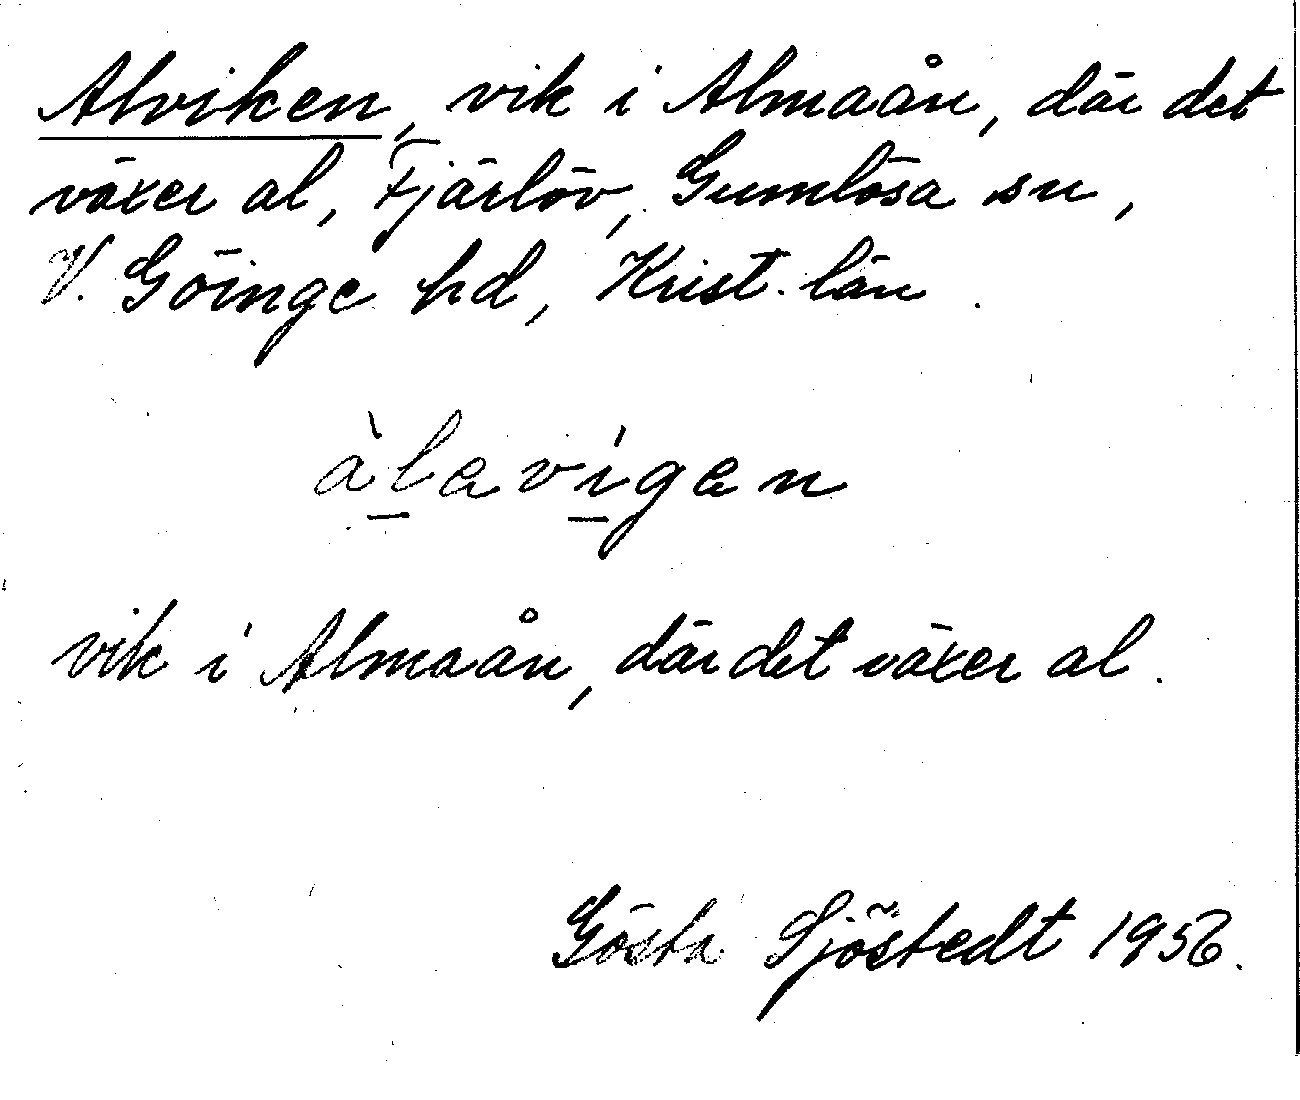 Alviken, vik i Almaån, där det
växer al, Fjärlöv, Gumlösa sn,
V. Göinge hd, Krist. län.
àlavígen
vik i Almaån, där det växer al.
Gösta Sjöstedt 1956.